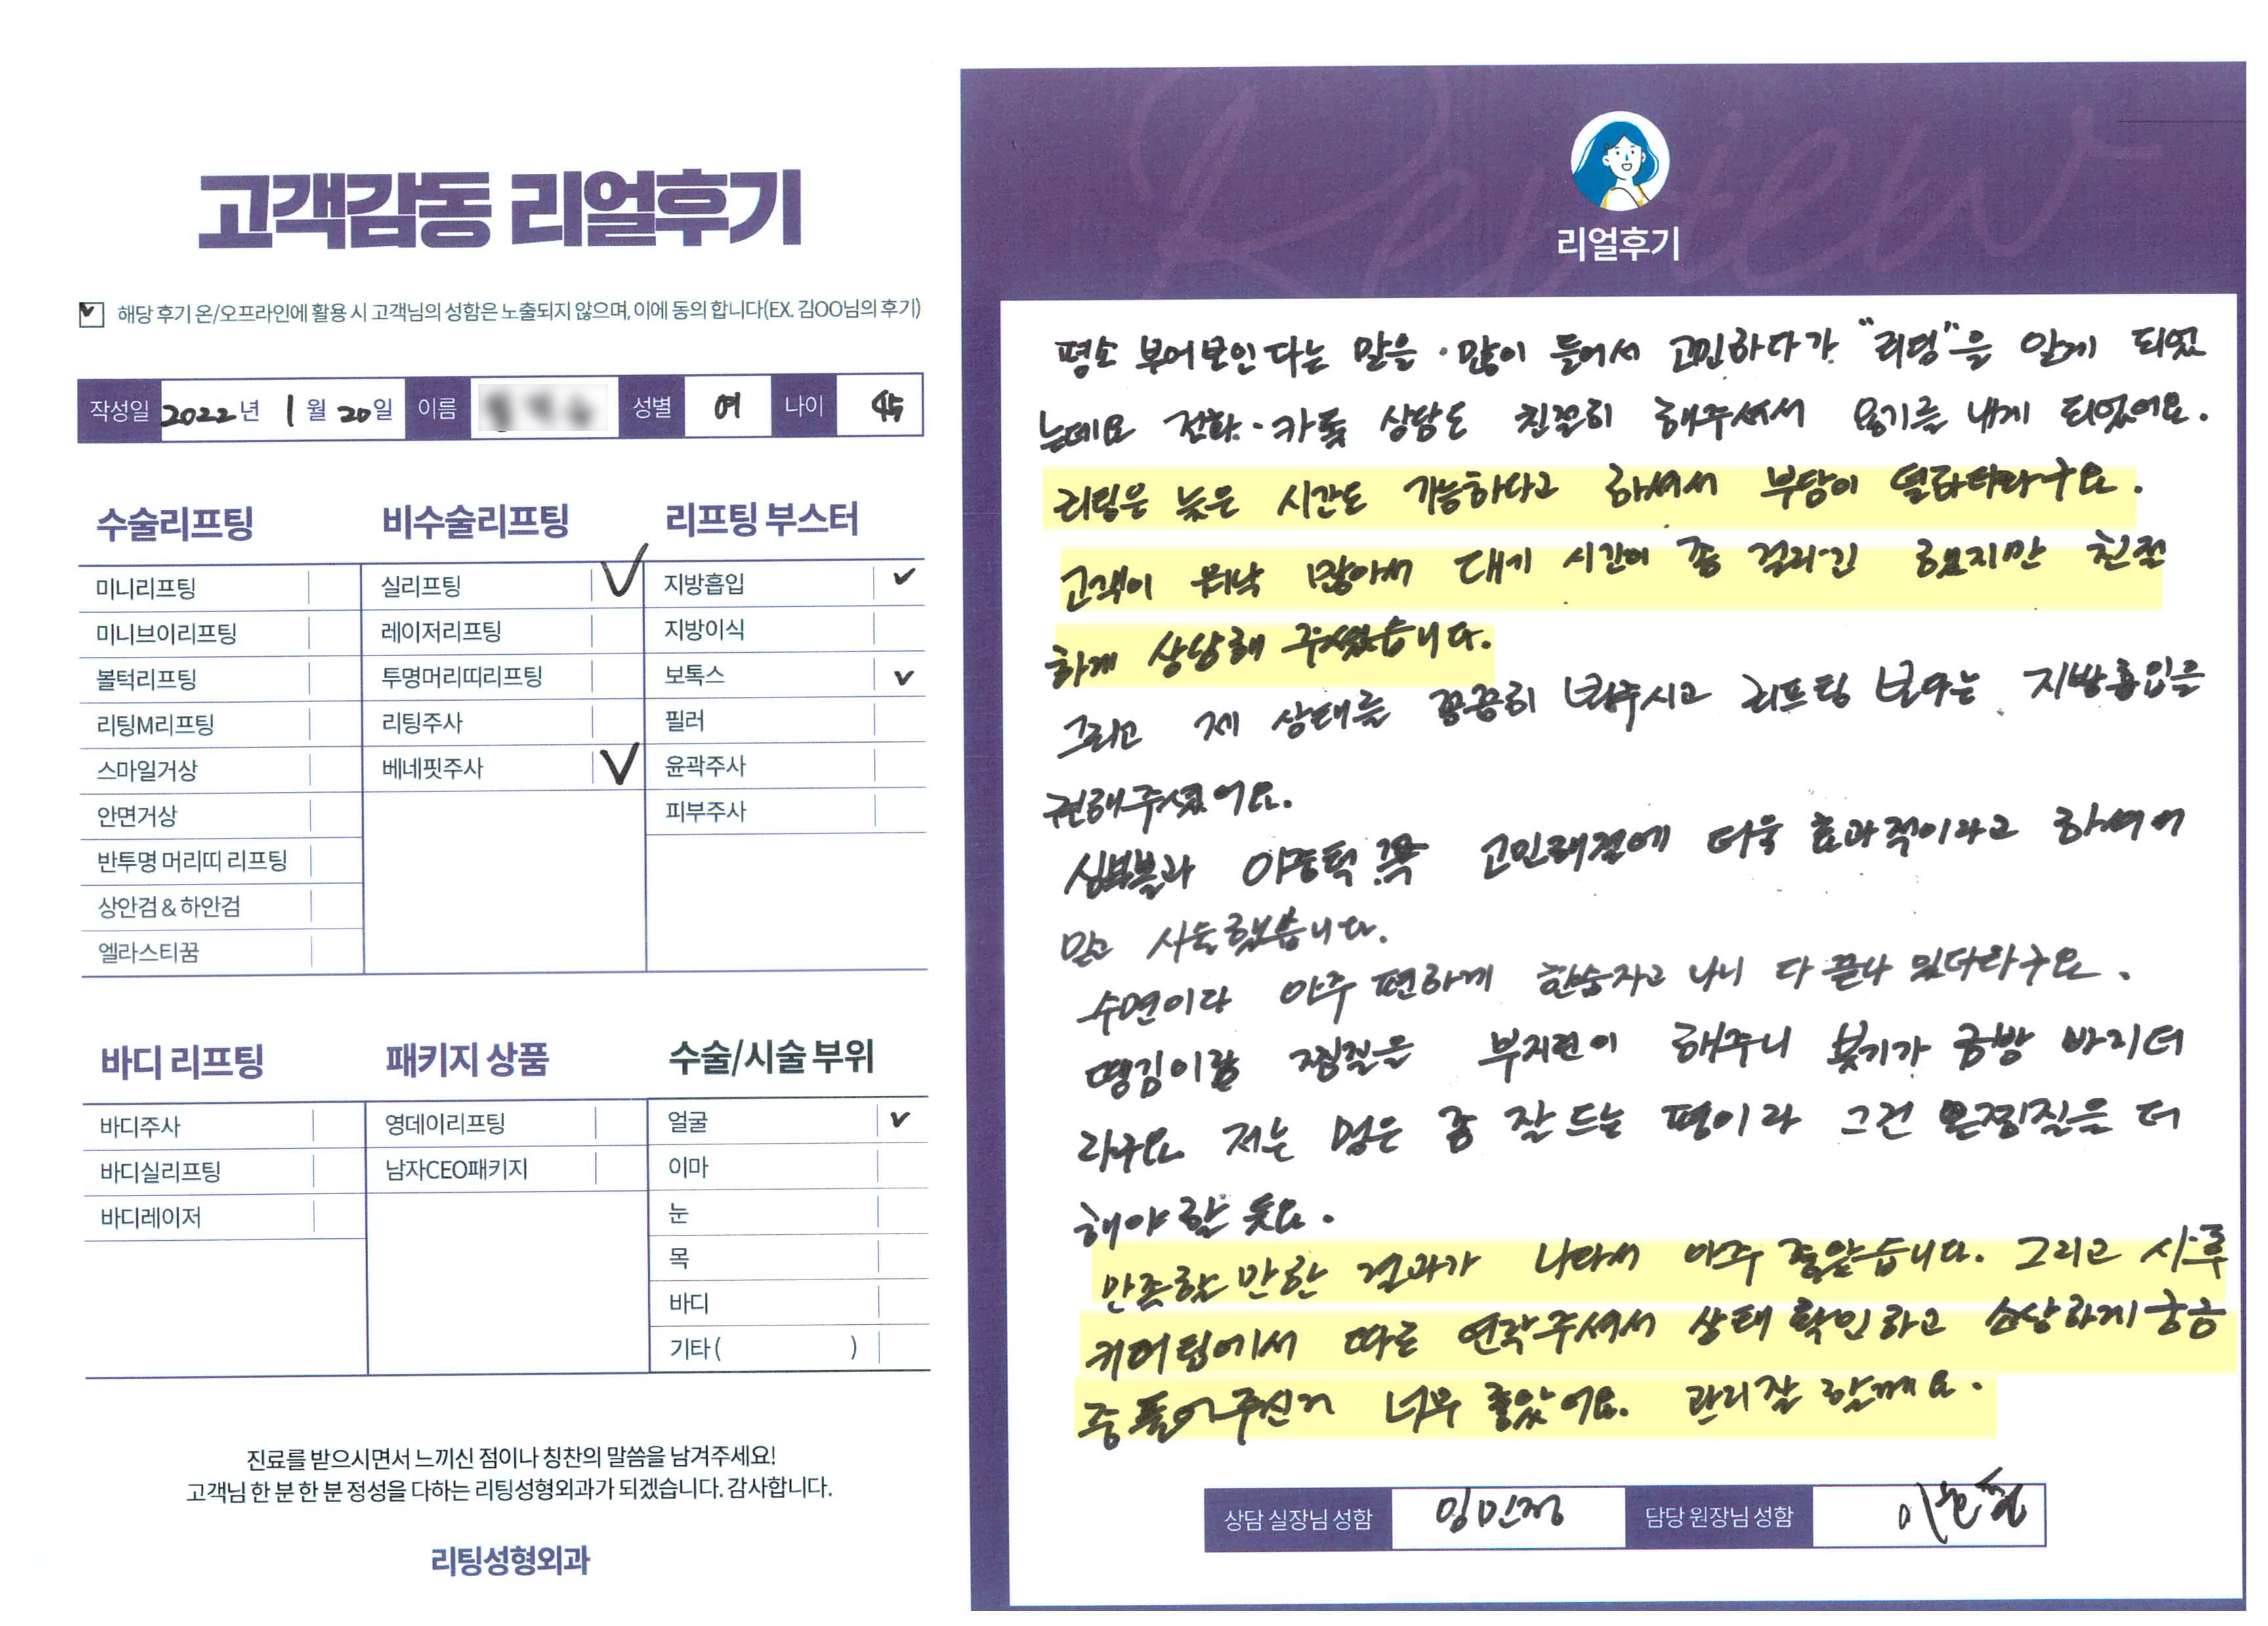 고객감동 리얼후기
해당 후기 온/오프라인에 활용 시 고객님의 성함은 노출되지 않으며, 이에 동의 합니다(EX. 김OO님의 후기)
작성일 2022년 1월 20일 이름 성별 여 나이 45
수술리프팅
미니리프팅
미니브이리프팅
볼턱리프팅
리팅M리프팅
스마일거상
안면거상
반투명 머리띠 리프팅
상안검 & 하안검
엘라스티꿈
비수술리프팅
실리프팅
레이저리프팅
투명머리띠리프팅
리팅주사
베네핏주사
리프팅 부스터
지방흡입
지방이식
보톡스
필러
윤곽주사
피부주사
바디 리프팅
바디주사
바디실리프팅
바디레이저
패키지 상품
영데이리프팅
남자CEO패키지
수술/시술 부위
얼굴
이마
눈
목
바디
기타 ( )
진료를 받으시면서 느끼신 점이나 칭찬의 말씀을 남겨주세요!
고객님 한 분 한 분 정성을 다하는 리팅성형외과가 되겠습니다. 감사합니다.
리팅성형외과
Review
리얼후기
평소 부어보인다는 말을 많이 들어서 고민하다가 "리팅"을 알게 되었
는데요 전화·카톡 상담도 친절히 해주셔서 용기를 내게 되었어요.
리팅은 늦은 시간도 가능하다고 하셔서 부담이 덜하더라구요.
고객이 워낙 많아서 대기 시간이 좀 걸리긴 했지만 친절
하게 상담해 주셨습니다.
그리고 제 상태를 꼼꼼히 봐주시고 리프팅 보다는 지방흡입을
권해주셨어요.
심부볼과 이중턱 쪽 고민해결에 더욱 효과적이라고 하셔서
믿고 시술했습니다.
수면이라 아주 편하게 한숨자고 나니 다 끝나 있더라구요.
땡김이랑 찜질을 부지런이 해주니 붓기가 금방 빠지더
라구요. 저는 멍은 좀 잘 드는 편이라 그건 온찜질을 더
해야 할 듯요.
만족할 만한 결과가 나타나서 아주 좋았습니다. 그리고 사후
케어팀에서 따로 연락주셔서 상태 확인하고 소상하게 궁금
증 풀어주신거 너무 좋았어요. 관리잘 할께요.
상담 실장님 성함 임민정 담당 원장님 성함